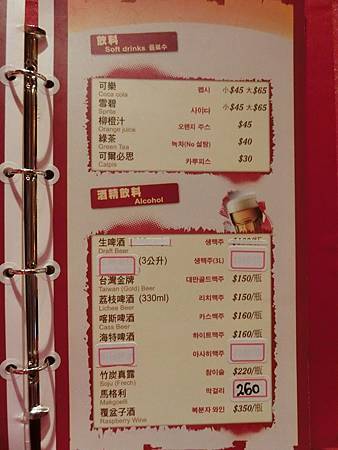 飲料
Soft drinks 음료수
可樂 펩시 小$45 大$65
Coca cola
雪碧 사이다 小$45 大$65
Sprite
柳橙汁 오렌지 주스 $45
Orange juice
綠茶 녹차(No 설탕) $40
Green Tea
可爾必思 카루피스 $30
Calpis
酒精飲料
Alcohol
生啤酒 생맥주
Draft Beer
(3公升) 생맥주(3L)
台灣金牌 대만골드맥주 $150/瓶
Taiwan (Gold) Beer
荔枝啤酒 (330ml) 리치맥주 $150/瓶
Lichee Beer
喀斯啤酒 카스맥주 $160/瓶
Cass Beer
海特啤酒 하이트맥주 $160/瓶
아사히맥주
竹炭真露 참이슬 $220/瓶
Soju (Frech)
馬格利 막걸리 260
Makgoelli
覆盆子酒 복분자 와인 $350/瓶
Raspberry Wine